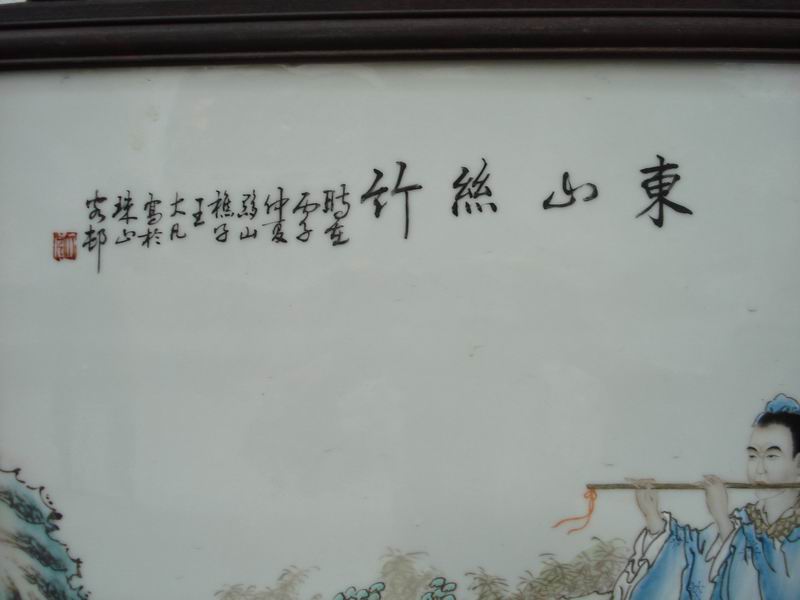 東山絲竹
時在
丙子
仲夏
黟山
樵子
王
大凡
寫於
珠山
客邨